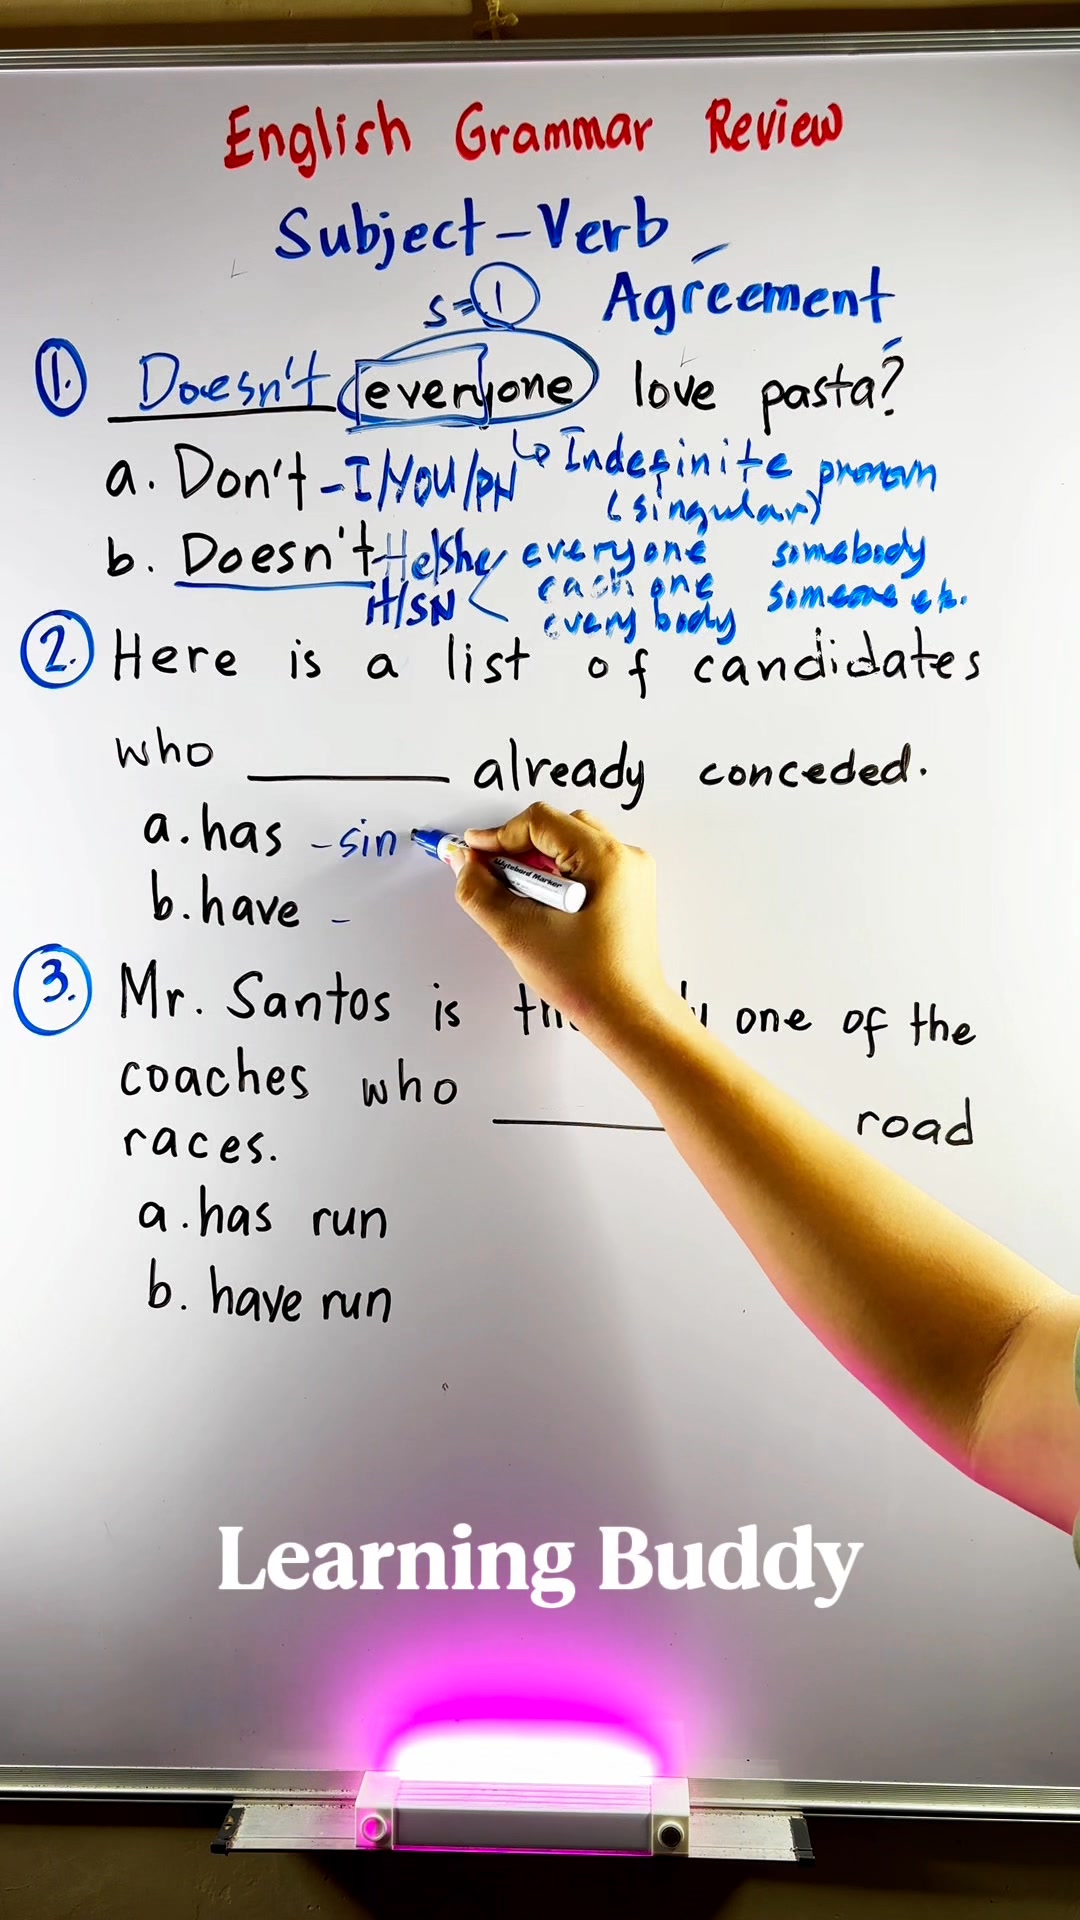 English Grammar Review
Subject-Verb
Agreement
S=1
1. Doesn't everyone love pasta?
a. Don't - I/YOU/PN
↳ Indefinite pronoun
(singular)
b. Doesn't - He/She/
it/SN
everyone somebody
each one someone etc.
everybody
2. Here is a list of candidates
who ________ already conceded.
a. has - sin
b. have -
3. Mr. Santos is one of the
coaches who ________ road
races.
a. has run
b. have run
Learning Buddy
Whiteboard Marker